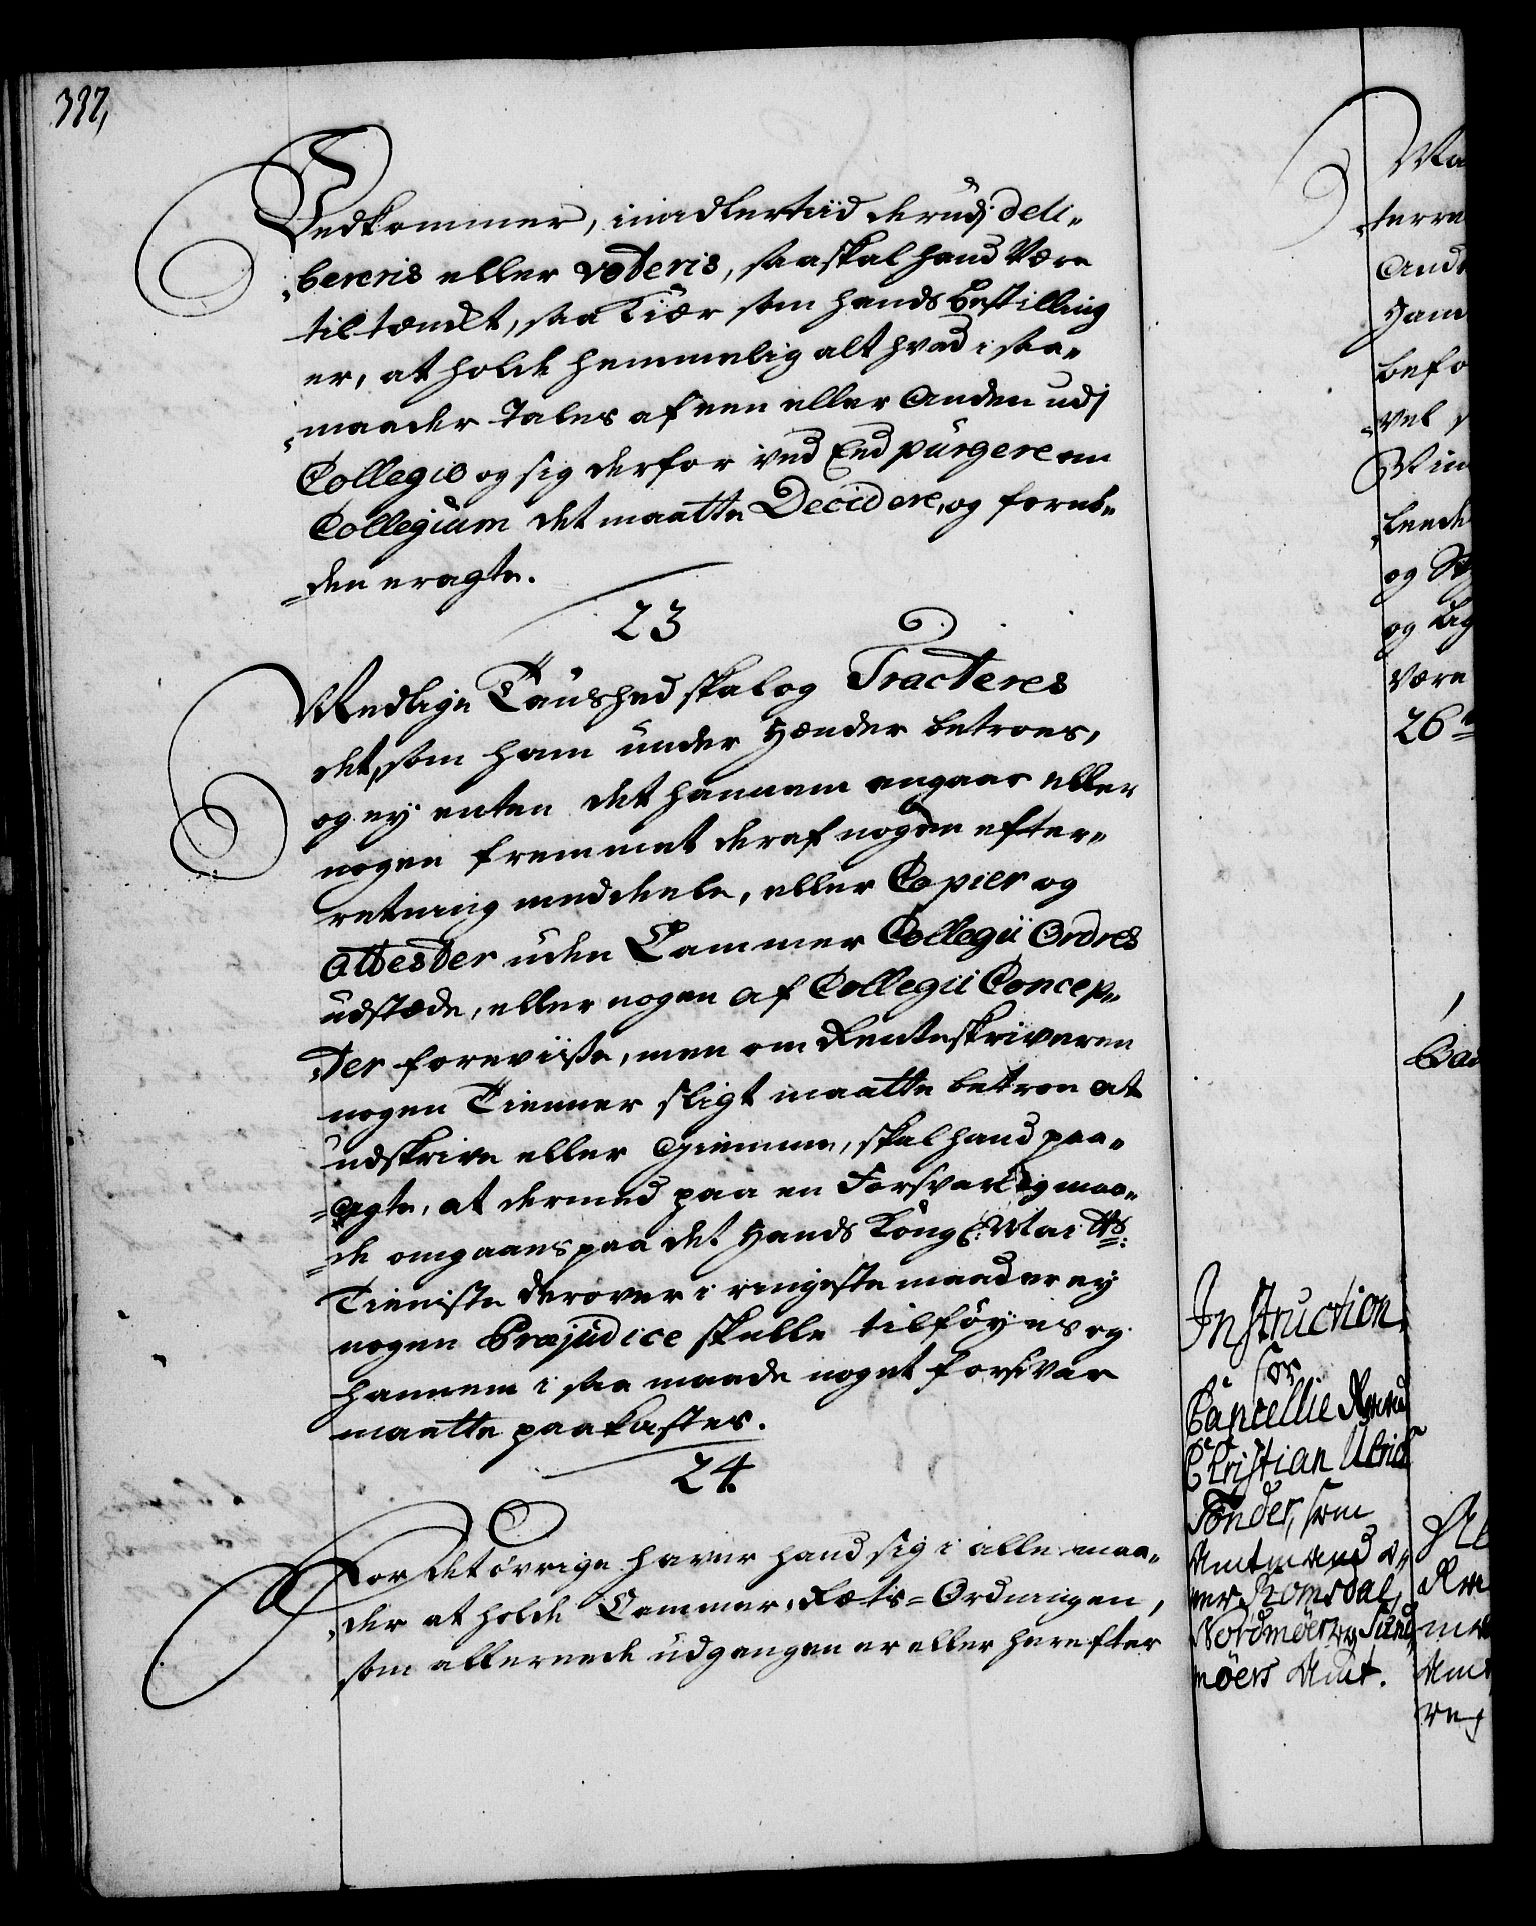 337,
Vedkommer, imidlertiid derudj deli-
bereris eller voteris, saa skal hand Være
tiltænckt, saa Kiær som hands bestilling
er, at holde hemmelig alt hvad i saa-
maader Tales af een eller Anden udj
Collegio og sig derfor ved Eed purgere om
Collegium det maatte Decidere, og fornö-
den eragte.
23
Medlige Taushed skal og Tracteres
det, som ham under Hænder betroes,
og ey enten det hannem angaar eller
nogen fremmet deraf nogen efter-
retning meddeele, eller Copier og
Attester uden Cammer Collegii Ordres
udstæde, eller nogen af Collegii Concep-
ter foreviise, men om Renteskriveren
nogen Tienner sligt maatte betroe at
udskrive eller Giemme, skal hand paa-
agte, at dermed paa en Forsvarlig maa-
de omgaaes paa det Hands Kongl: Maitts:
Tieniste derover i ringeste maader ey
nogen Præjudice skulle tilföyes og
hannem i saa maade noget forsvar
maatte paakastes.
24.
For det övrige haver hand sig i alle maa-
der at holde Cammer-Rets-Ordningen,
som allerede udgangen er eller herefter
Instruction
for
Cancellie Raad
Christian Ulrich
Tönder, som
Amtmand o-
ver Romsdal,
Nordmöer og Sund
möers Amt.
terre
Ande
befo
vel
og
og
være
26